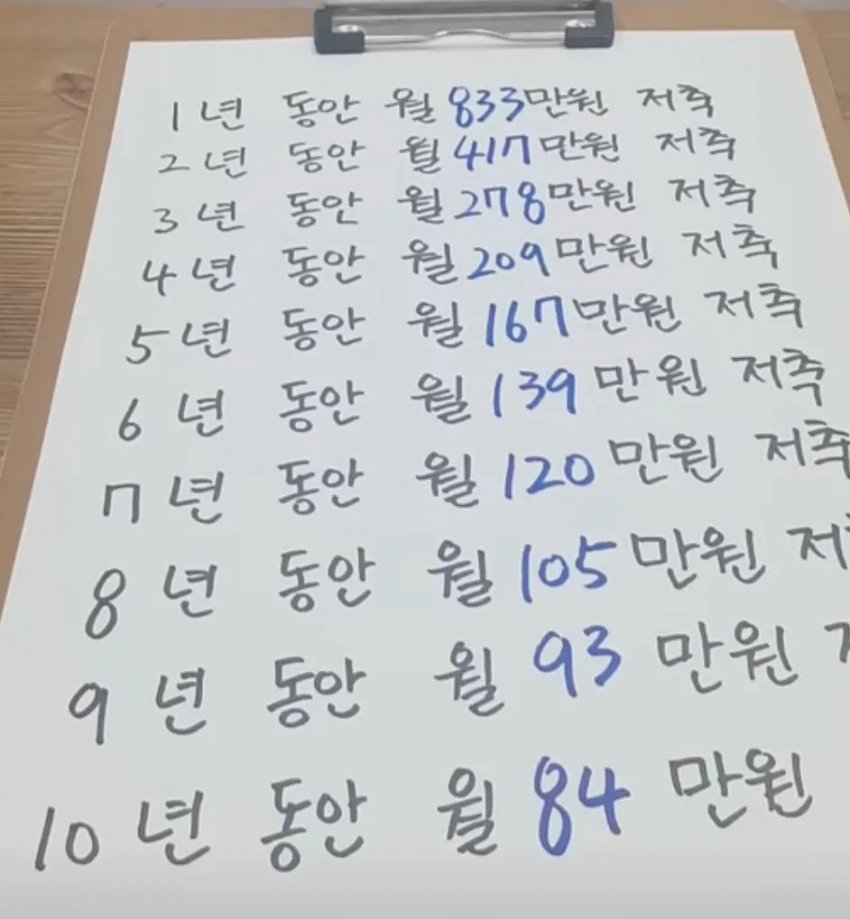 1년 동안 월 833만원 저축
2년 동안 월 417만원 저축
3년 동안 월 278만원 저축
4년 동안 월 209만원 저축
5년 동안 월 167만원 저축
6년 동안 월 139만원 저축
7년 동안 월 120만원 저축
8년 동안 월 105만원 저
9년 동안 월 93만원
10년 동안 월 84만원